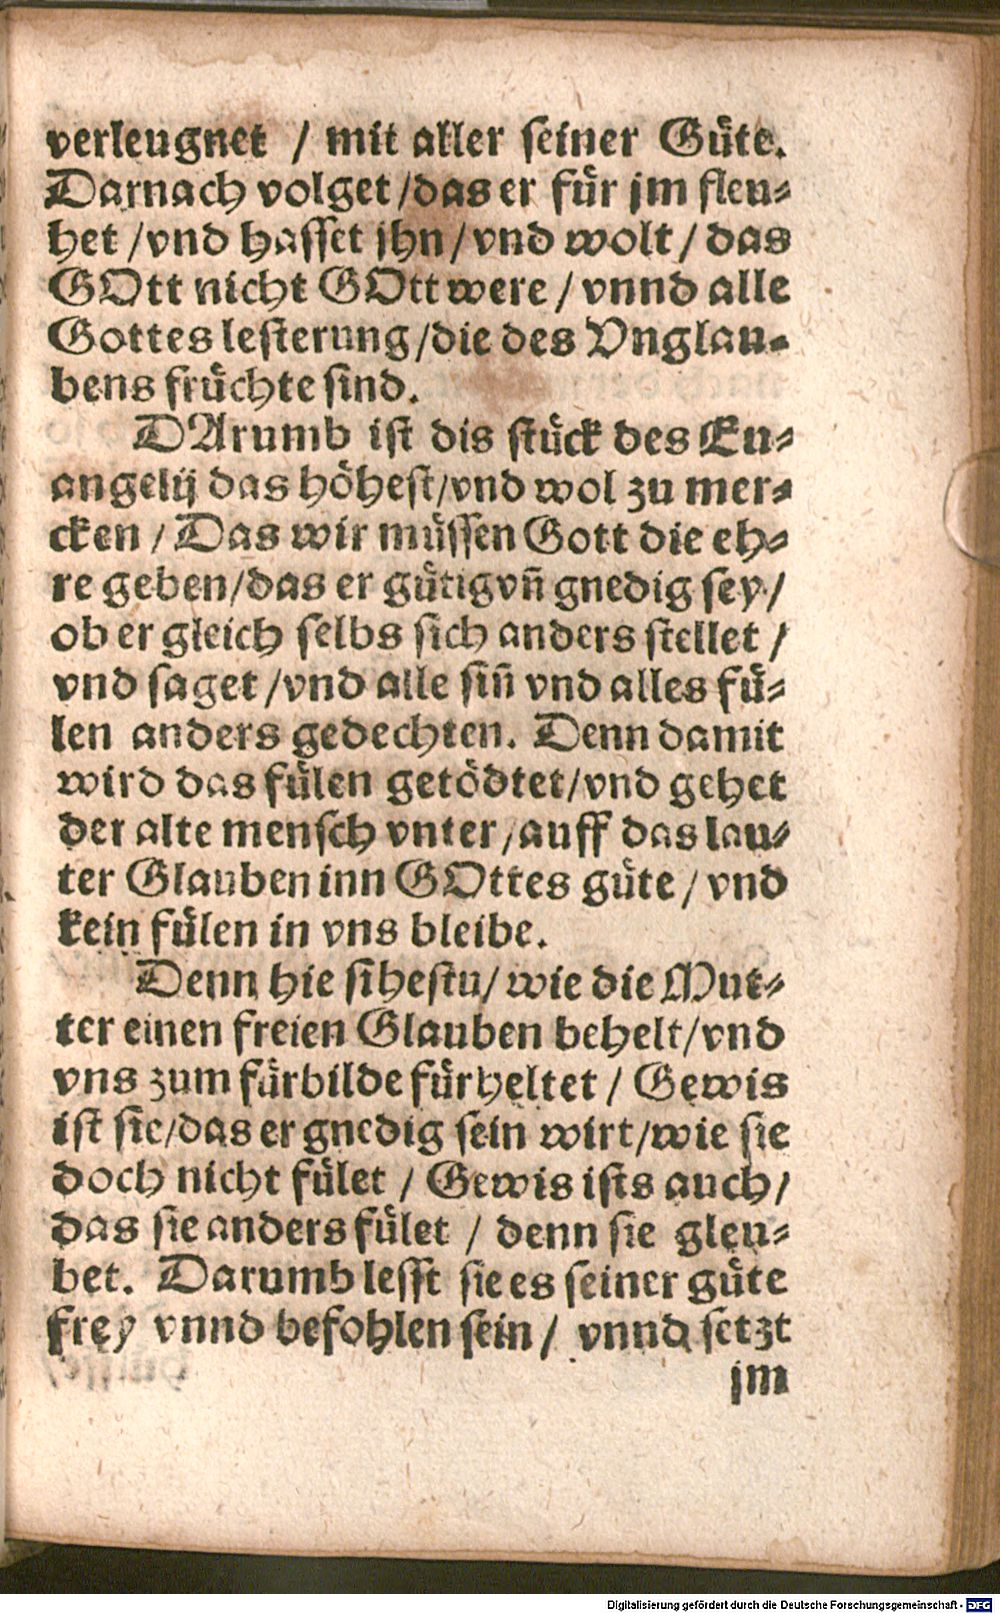 verleugnet / mit aller seiner Güte.
Darnach volget /das er für jm fleu-
het /vnd hasset jhn /vnd wolt / das
GOtt nicht GOtt were / vnnd alle
Gottes lesterung /die des Vnglau-
bens früchte sind.
DArumb ist dis stück des Eu-
angelij das höhest/vnd wol zu mer-
cken / Das wir müssen Gott die eh-
re geben/das er gütig vñ gnedig sey/
ob er gleich selbs sich anders stellet /
vnd saget /vnd alle siñ vnd alles fü-
len anders gedechten. Denn damit
wird das fülen getödtet/vnd gehet
der alte mensch vnter/auff das lau-
ter Glauben inn GOttes güte / vnd
kein fülen in vns bleibe.
Denn hie sihestu/ wie die Mut-
ter einen freien Glauben behelt/vnd
vns zum fürbilde fürheltet / Gewis
ist sie/das er gnedig sein wirt/wie sie
doch nicht fület / Gewis ists auch/
das sie anders fület / denn sie gleu-
bet. Darumb lesst sie es seiner güte
frey vnnd befohlen sein / vnnd setzt
jm
Digitalisierung gefördert durch die Deutsche Forschungsgemeinschaft - DFG